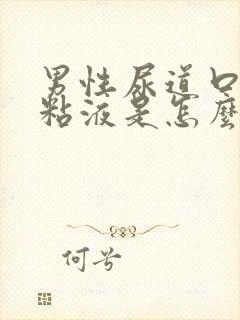 男性尿道口
粘液是怎麼
何兮